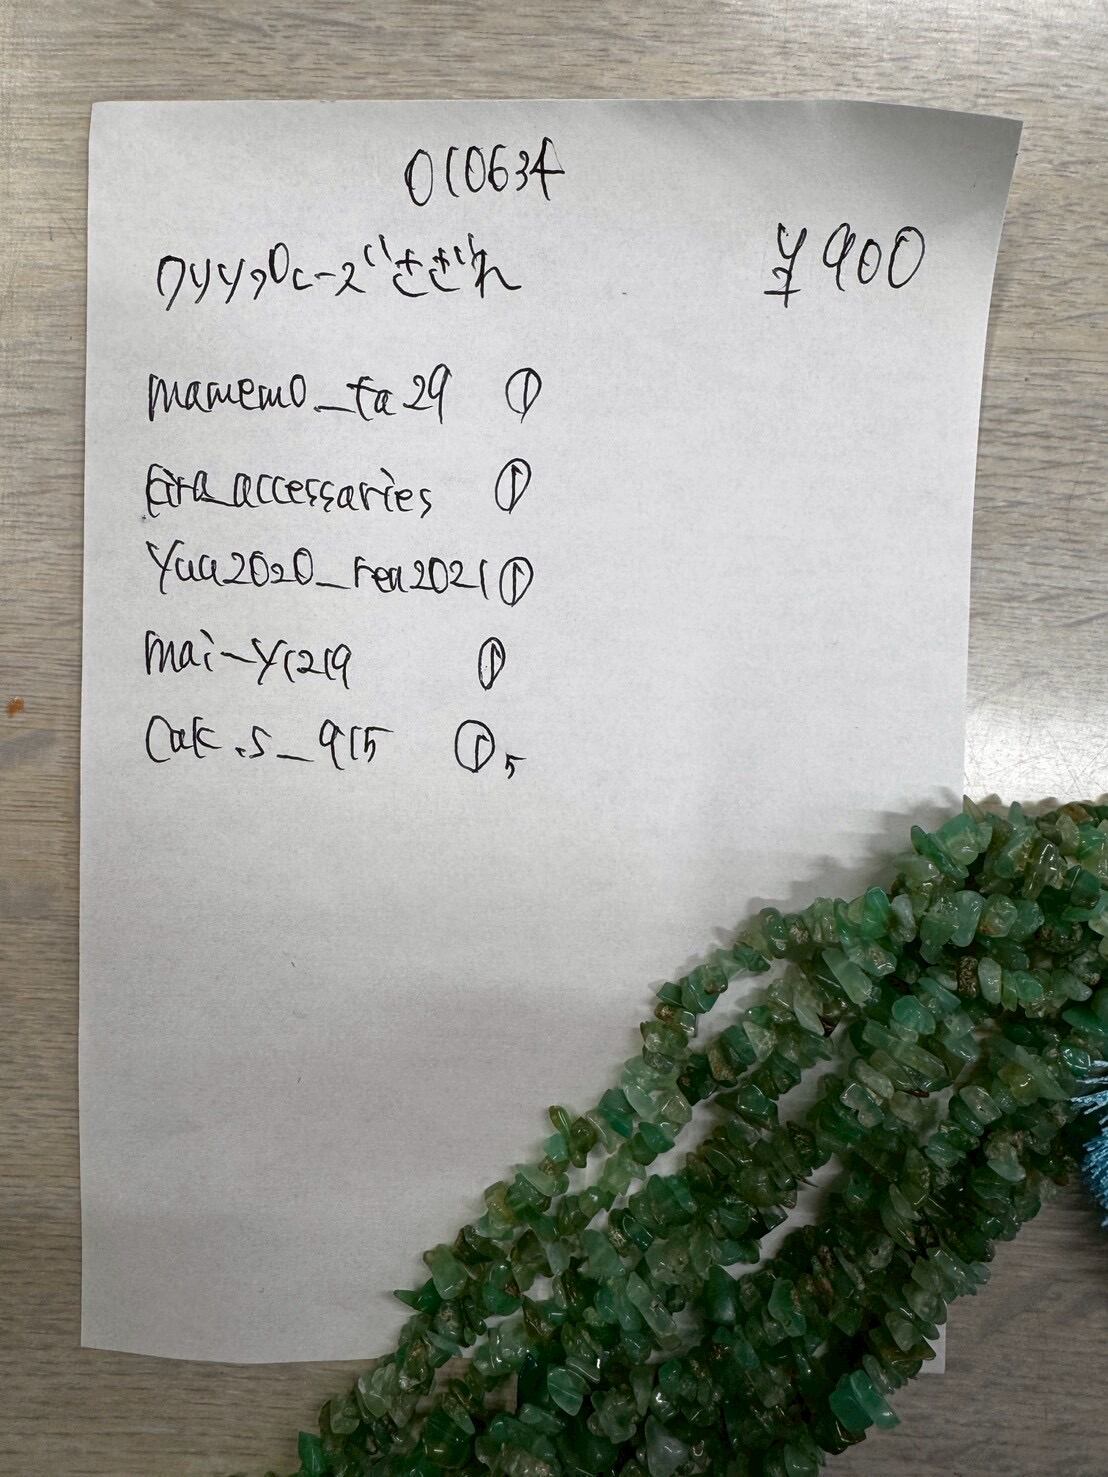 010634
クリソプレーズさざれ ¥900
mamemo_ta29 ①
Eira_accessaries ①
Yaa2020_rea2021 ①
mai-y1219 ①
Cak.s_915 ①,5